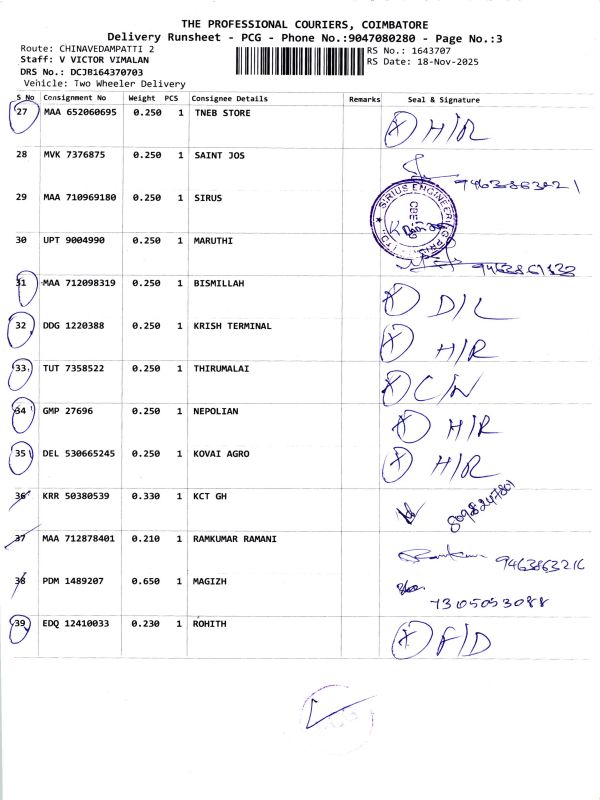 THE PROFESSIONAL COURIERS, COIMBATORE
Delivery Runsheet - PCG - Phone No.:9047080280 - Page No.:3
Route: CHINAVEDAMPATTI 2
RS No.: 1643707
Staff: V VICTOR VIMALAN
RS Date: 18-Nov-2025
DRS No.: DCJB164370703
Vehicle: Two Wheeler Delivery
S No Consignment No Weight PCS Consignee Details Remarks Seal & Signature
27 MAA 652060695 0.250 1 TNEB STORE X H/R
28 MVK 7376875 0.250 1 SAINT JOS
29 MAA 710969180 0.250 1 SIRUS SIRIUS ENGINEERING CBE
30 UPT 9004990 0.250 1 MARUTHI
31 MAA 712098319 0.250 1 BISMILLAH X D/L
32 DDG 1220388 0.250 1 KRISH TERMINAL X H/R
33 TUT 7358522 0.250 1 THIRUMALAI X C/N
34 GMP 27696 0.250 1 NEPOLIAN X H/R
35 DEL 530665245 0.250 1 KOVAI AGRO X H/R
36 KRR 50380539 0.330 1 KCT GH
37 MAA 712878401 0.210 1 RAMKUMAR RAMANI 9463863216
38 PDM 1489207 0.650 1 MAGIZH 7305053088
39 EDQ 12410033 0.230 1 ROHITH X F/D